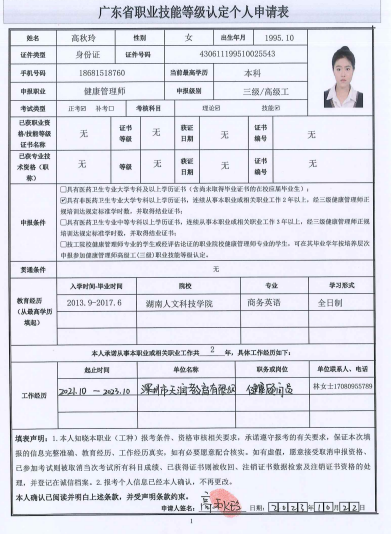 广东省职业技能等级认定个人申请表
姓名 高秋玲 性别 女 出生年月 1995.10
证件类型 身份证 证件号码 430611199510025543
手机号码 18681518760 当前最高学历 本科
申报职业 健康管理师 申报级别 三级/高级工
考试类型 正考☑ 补考□ 考核科目 理论☑ 技能☑
已获职业资格/技能等级证书名称 无 证书等级 无 获证日期 无 证书编号 无
已获专业技术资格（职称） 无 等级 无 获证日期 无 证书编号 无
申报条件
□具有医药卫生专业大学专科及以上学历证书（含尚未取得毕业证书的在校应届毕业生）；
☑具有非医药卫生专业大学专科以上学历证书，连续从事本职业或相关职业工作2年以上，经三级健康管理师正规培训达规定标准学时数，并取得结业证书；
□具有医药卫生专业中等专科以上学历证书，连续从事本职业或相关职业工作3年以上，经三级健康管理师正规培训达规定标准学时数，并取得结业证书；
□技工院校健康管理师专业的学生或经评估论证的职业院校健康管理师专业的学生，可在其毕业学年按培养层次申报参加健康管理师高级工(三级)职业技能等级认定。
贯通条件 无
教育经历（从最高学历填起）
入学时间-毕业时间 院校 专业 学习形式
2013.9-2017.6 湖南人文科技学院 商务英语 全日制
本人承诺从事本职业或相关职业工作共 2 年，具体工作经历如下：
工作经历
起止时间 单位名称 职务或岗位 单位联系人、电话
2021.10 — 2023.10 深圳市天润教育有限公司 健康顾问员 林女士17080955789
填表声明：1.本人知晓本职业（工种）报考条件、资格审核相关要求，承诺遵守报考的有关要求，保证本次填报的信息完整准确、教育经历、工作经历真实，如有必要愿意配合核实。如有虚假，愿意接受取消申报资格、已参加考试则被取消当次考试所有科目成绩、已获得证书则被收回、注销证书数据检索及注销证书资格的处理，并登记在诚信档案。2.报考个人信息已经本人确认，不再更改。
本人确认已阅读并明白上述条款，并受声明条款约束。
申请人签名：高秋玲 日期：2023年10月22日
1